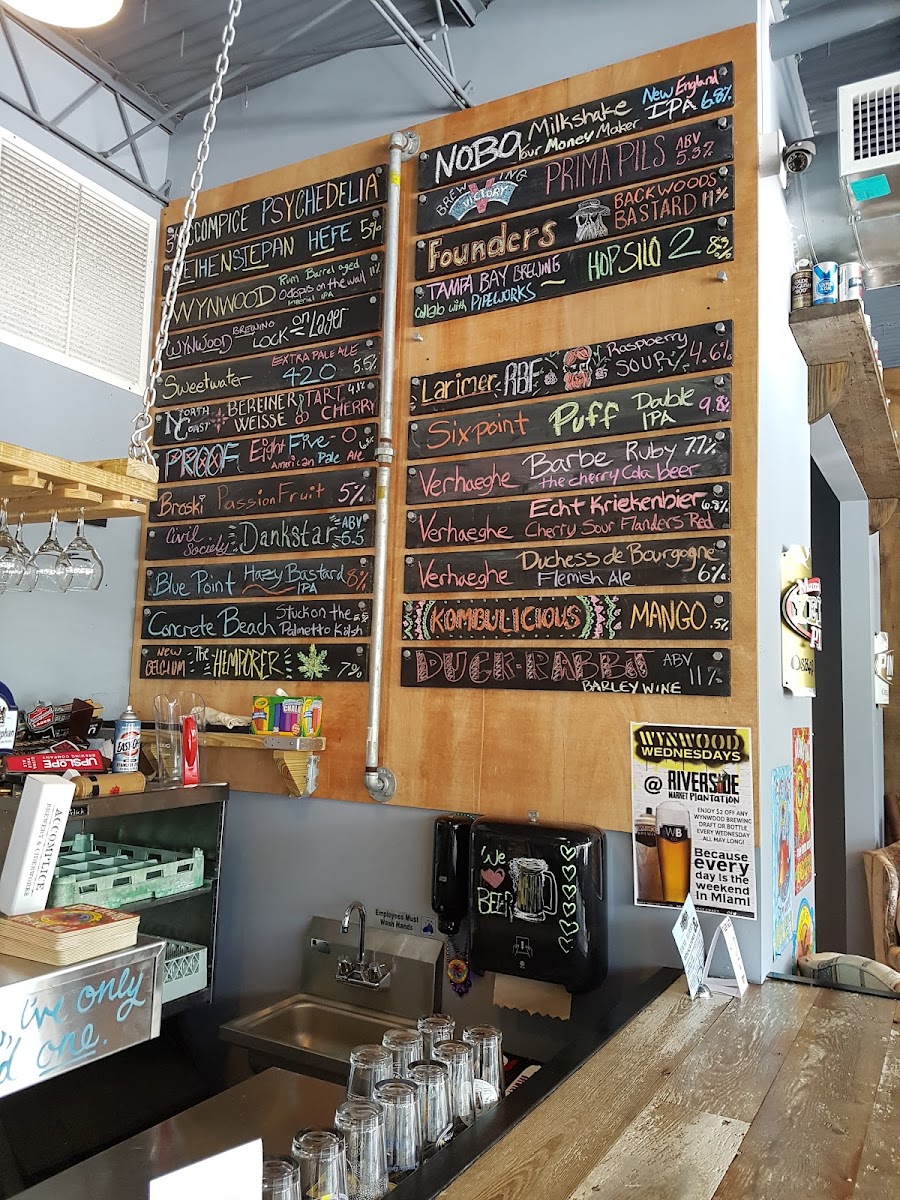 ACCOMPICE PSYCHEDELIA
5%
WEIHENSTEPAN HEFE 5%
WYNWOOD Rum Barrel aged 11%
Octopis on the wall
Imperial IPA
WYNWOOD BREWING LOCK on Lager
Sweetwater EXTRA PALE ALE
420 5.5%
NORTH COAST BEREINER WEISSE TART CHERRY 4.1%
PROOF Eight Five-O
American Pale Ale
Braski Passion Fruit 5%
Civil Society Dankstar ABV 6.5
Blue Point Hazy Bastard IPA 6%
Concrete Beach Stuck on the
Palmetto Kölsh
NEW BELGIUM The HEMPERER 7%
NOBO Milkshake New England
Your Money Maker IPA 6.8%
BREWING VICTORY PRIMA PILS ABV 5.3%
Founders BACKWOODS BASTARD 11%
TAMPA BAY BREWING
collab with PIPEWORKS ~ HOP SILO 2 8.3%
Larimer RBF Raspberry SOUR 4.6%
Sixpoint Puff Double IPA 9.8%
Verhaeghe Barbe Ruby 7.7%
the cherry Cola beer
Verhaeghe Echt Kriekenbier 6.8%
Cherry Sour Flanders Red
Verhaeghe Duchess de Bourgogne
Flemish Ale 6%
KOMBULICIOUS MANGO .5%
DUCK-RABBIT ABV 11%
BARLEY WINE
CHALK
UPSLOPE
BREWING COMPANY
ACCOMPLICE
BREWERY & CIDERWORKS
I've only
one.
Employees Must
Wash Hands
We
BEER
WYNWOOD
WEDNESDAYS
@ RIVERSIDE
MARKET PLANTATION
ENJOY $2 OFF ANY
WYNWOOD BREWING
DRAFT OR BOTTLE
EVERY WEDNESDAY
ALL MAY LONG!
WB
Because
every
day is the
weekend
in Miami